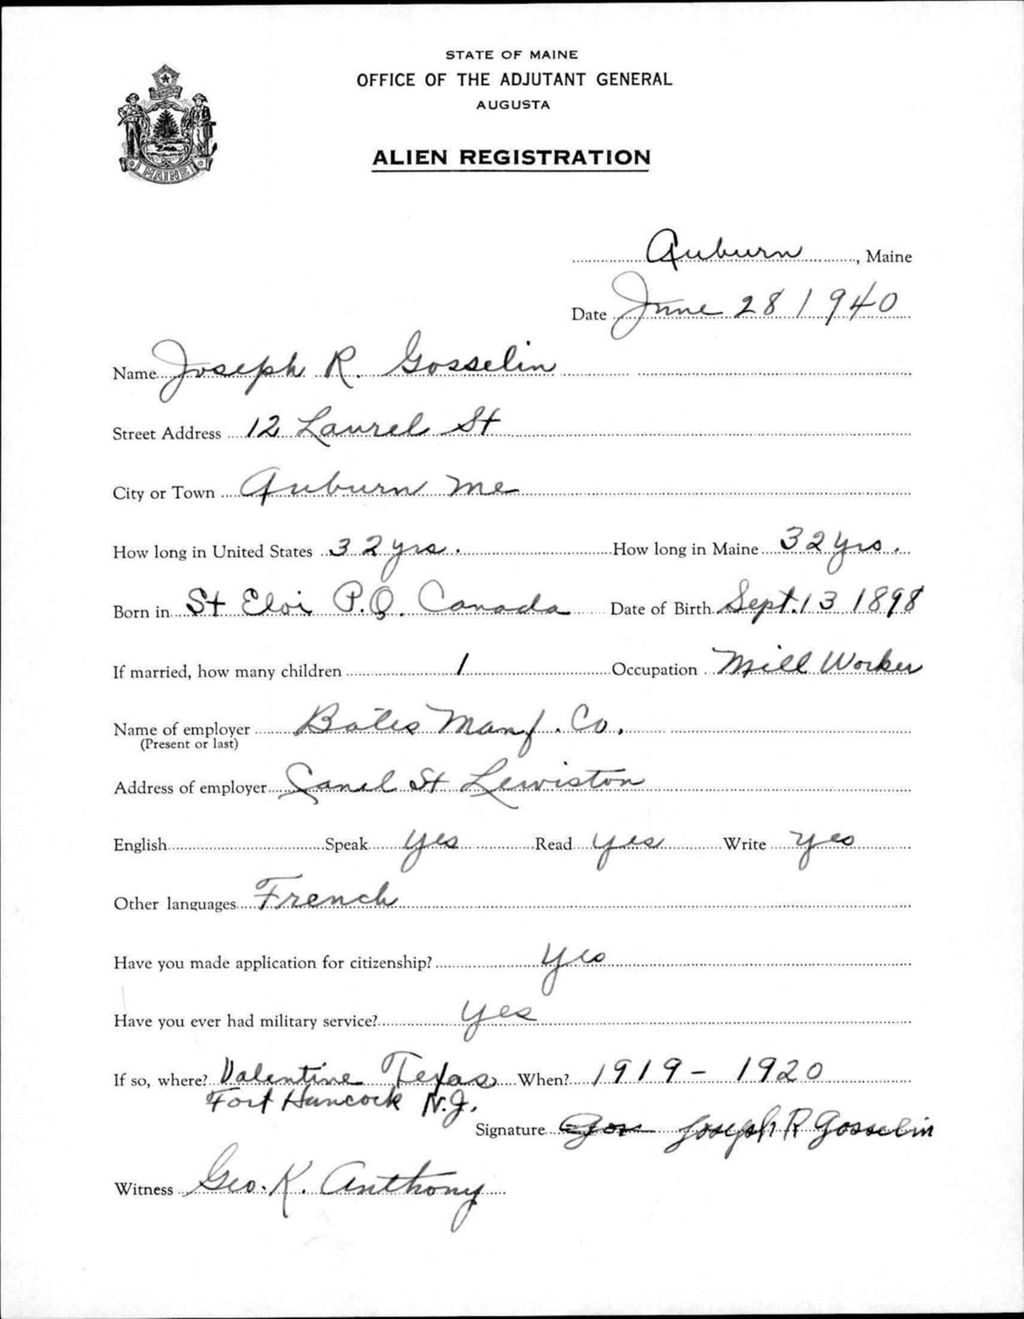 STATE OF MAINE
OFFICE OF THE ADJUTANT GENERAL
AUGUSTA
ALIEN REGISTRATION
MAINE
Auburn, Maine
Date June 28 1940
Name Joseph R. Gosselin
Street Address 12 Laurel St
City or Town Auburn Me
How long in United States 32 yrs. How long in Maine 32 yrs.
Born in St Eloi P.Q. Canada Date of Birth Sept. 13 1898
If married, how many children 1 Occupation Mill Worker
Name of employer Bates Manf. Co.
(Present or last)
Address of employer Canal St Lewiston
English Speak yes Read yes Write yes
Other languages French
Have you made application for citizenship? yes
Have you ever had military service? yes
If so, where? Valentine Texas When? 1919 - 1920
Fort Hancock N.J.
Signature Gos Joseph R Gosselin
Witness Geo. K. Anthony